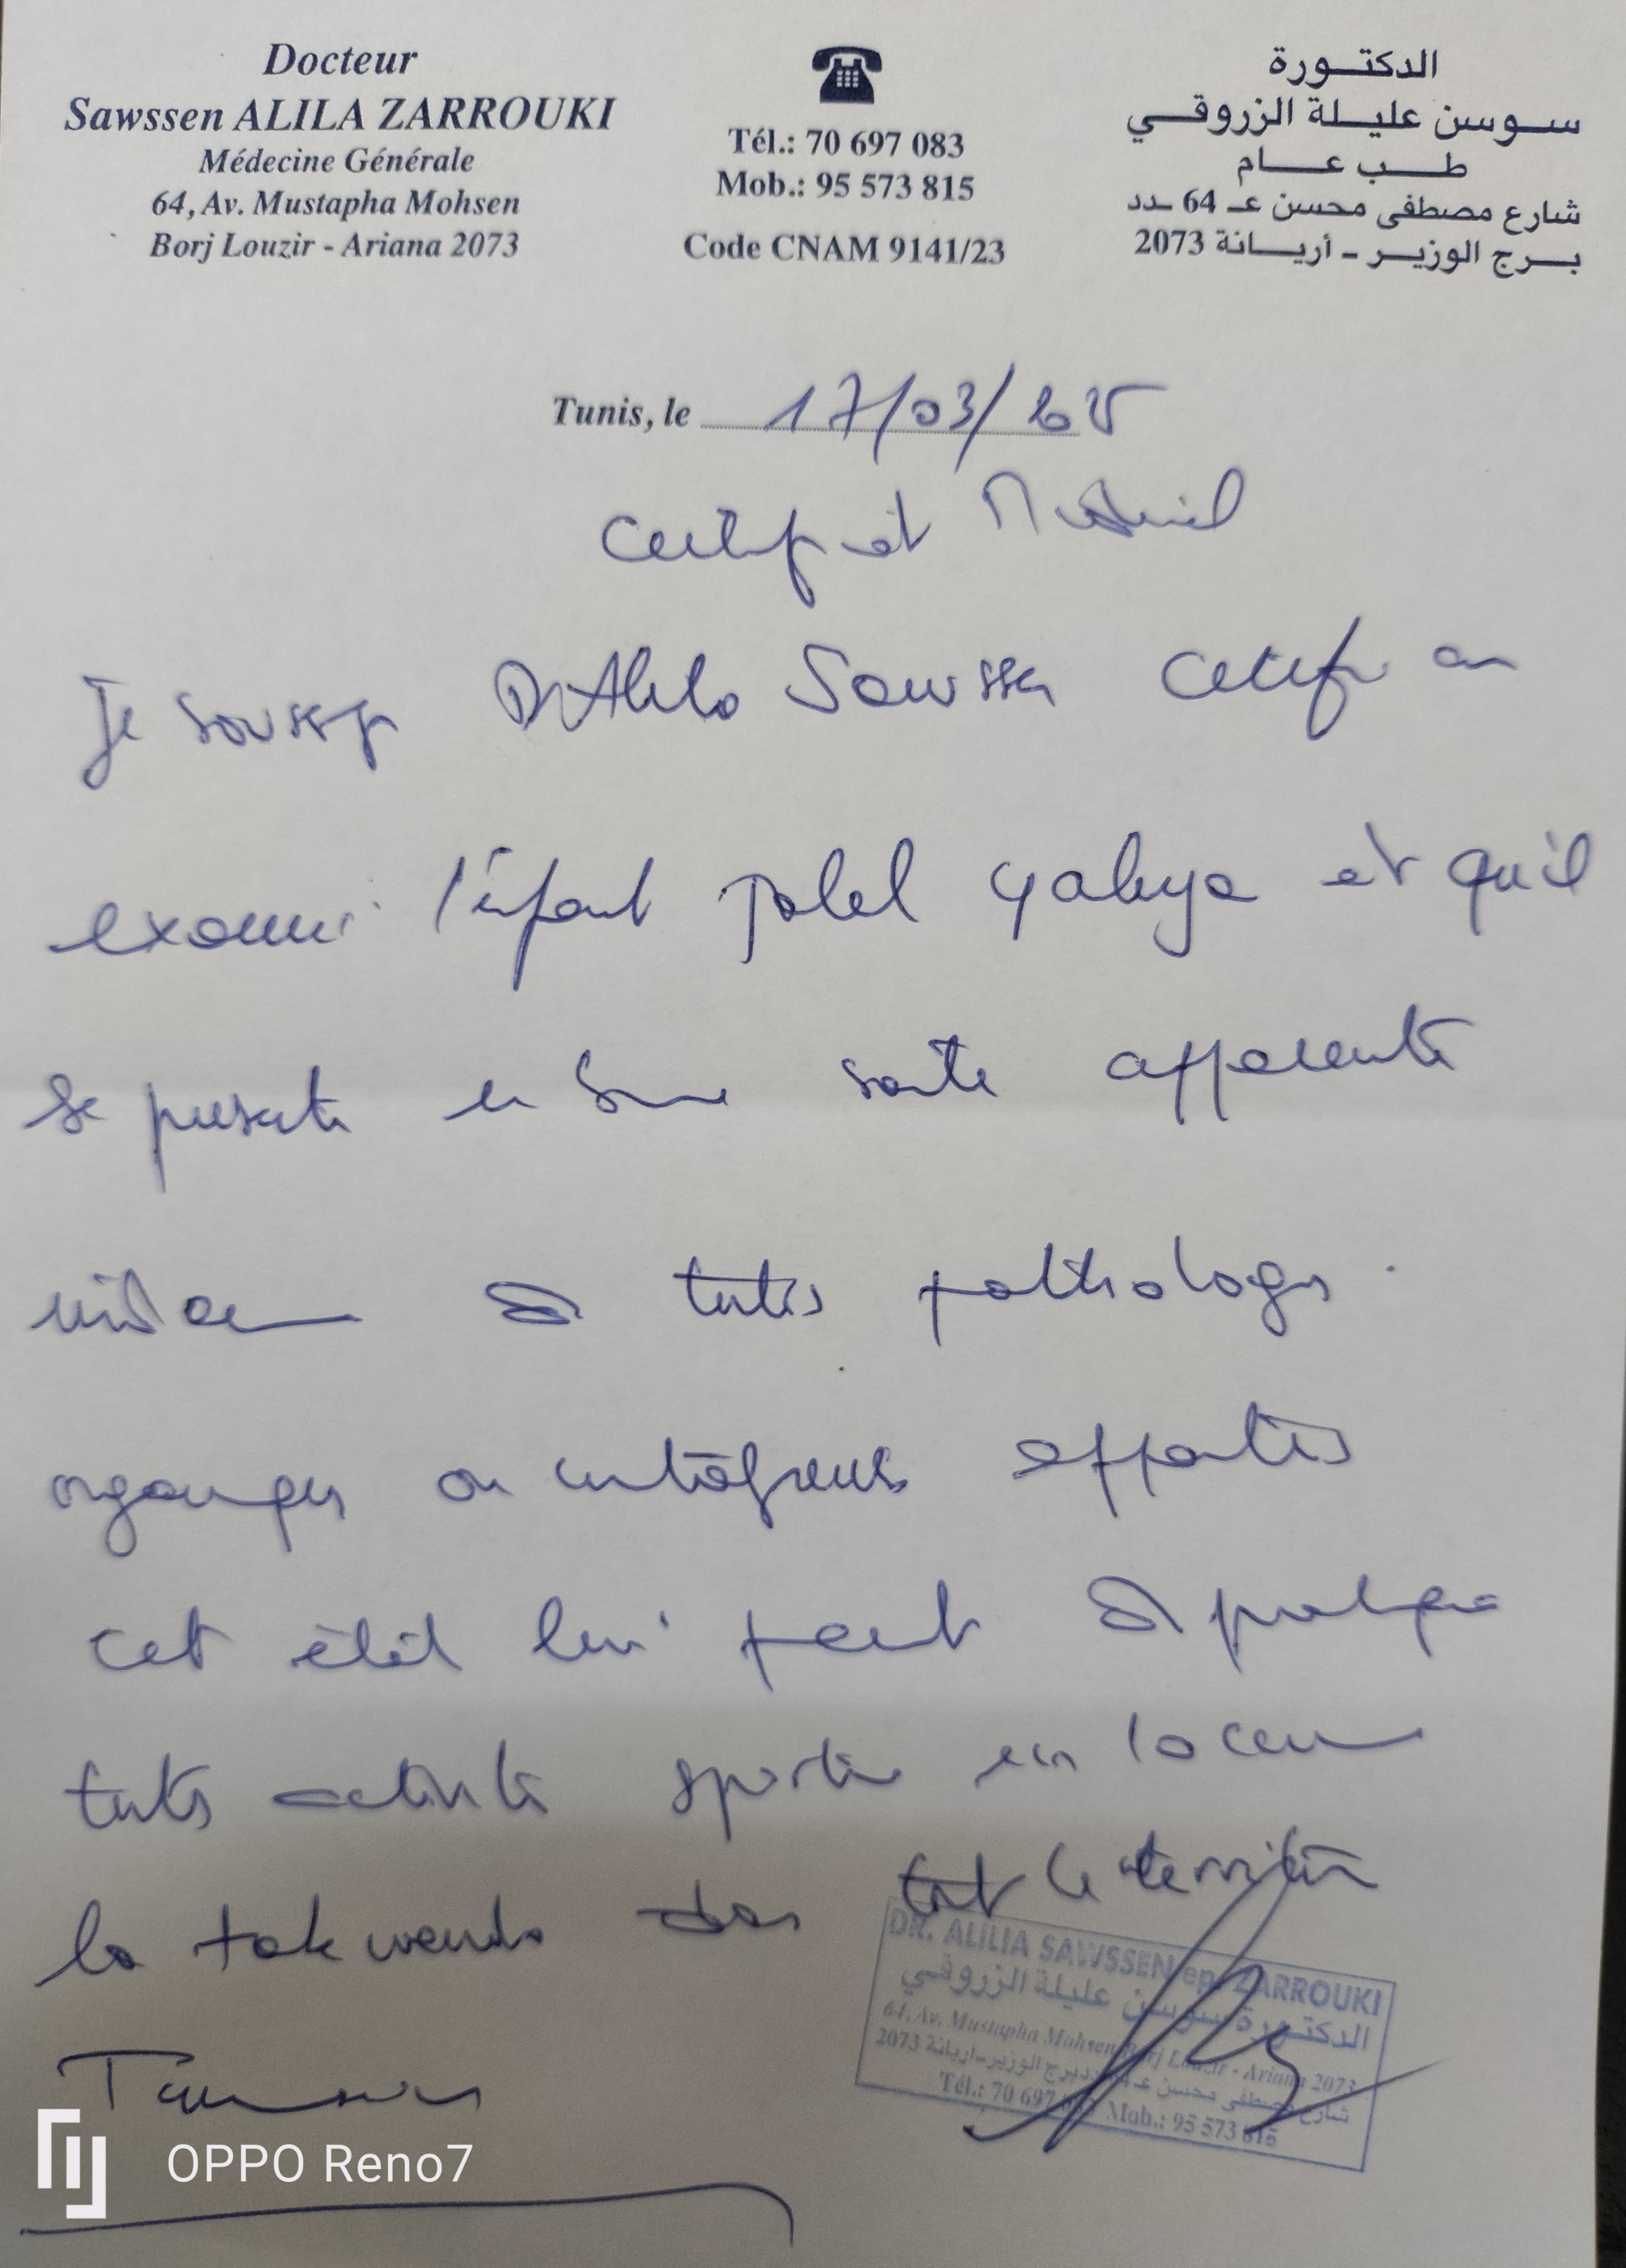 Docteur
Sawssen ALILA ZARROUKI
Médecine Générale
64, Av. Mustapha Mohsen
Borj Louzir - Ariana 2073
Tél.: 70 697 083
Mob.: 95 573 815
Code CNAM 9141/23
الدكتورة
سوسن عليلة الزروقي
طب عام
شارع مصطفى محسن عـ 64 ـدد
برج الوزير - أريانة 2073
Tunis, le 17/03/2025
Certificat Médical
Je soussigné Dr Alila Sawssen certifie avoir
examiné l'enfant Jalel Yahya et qu'il
se présente en bonne santé apparente
de toutes pathologies
organiques ou contagieuses
cet état lui permet de pratiquer
toutes activités sportives
la takwendo dans tout le territoire
Tunisien
DR. ALILIA SAWSSEN ep. ZARROUKI
الدكتورة سوسن عليلة الزروقي
64, Av. Mustapha Mohsen Borj Louzir - Ariana 2073
شارع مصطفى محسن عـ 64 ـدد برج الوزير-أريانة 2073
Tél.: 70 697 083 Mob.: 95 573 815
OPPO Reno7